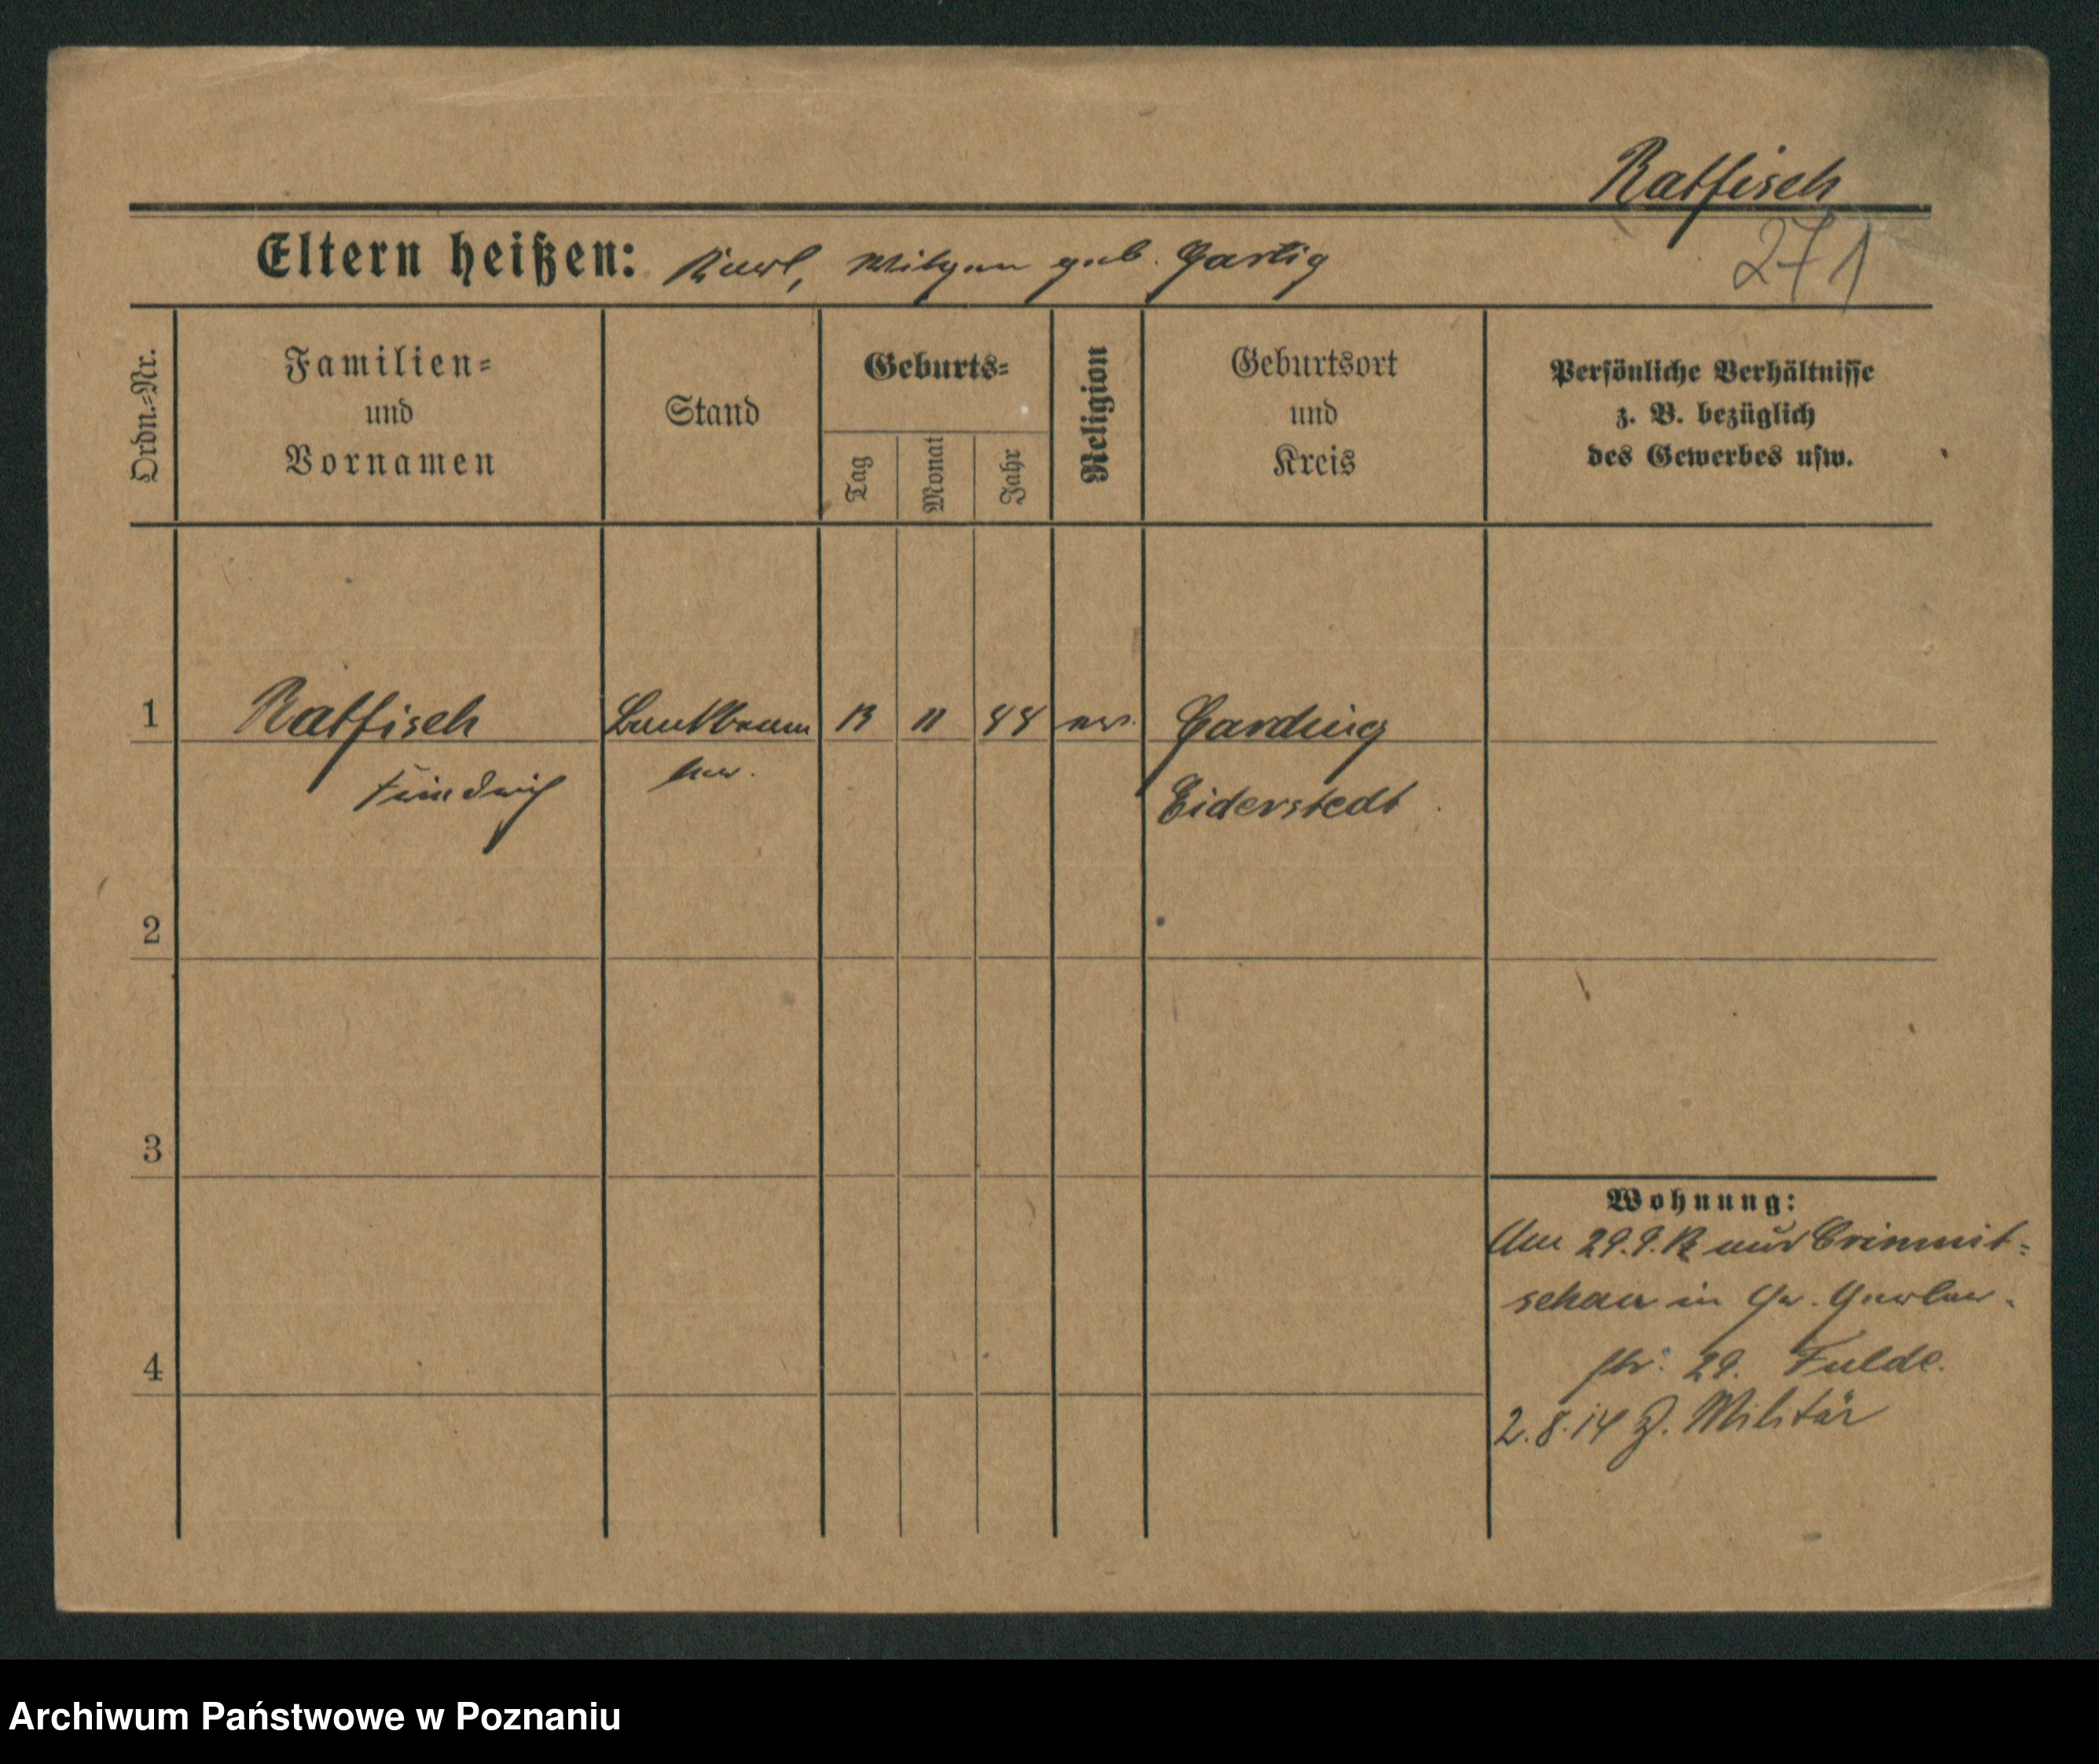 Ratfisch
271
Eltern heißen: Karl, geb. Hartig
Ordn.-Nr.
Familien-
und
Vornamen
Stand
Geburts-
Tag
Monat
Jahr
Religion
Geburtsort
und
Kreis
Persönliche Verhältnisse
z. B. bezüglich
des Gewerbes usw.
1
Ratfisch
Friedrich
Bankbeam
ter.
13
11
88
ev.
Garding
Eiderstedt
2
3
4
Wohnung:
Am 29.9. aus Crimmit-
schau in
str. 29. Fulde.
2.8.14 z. Militär
Archiwum Państwowe w Poznaniu